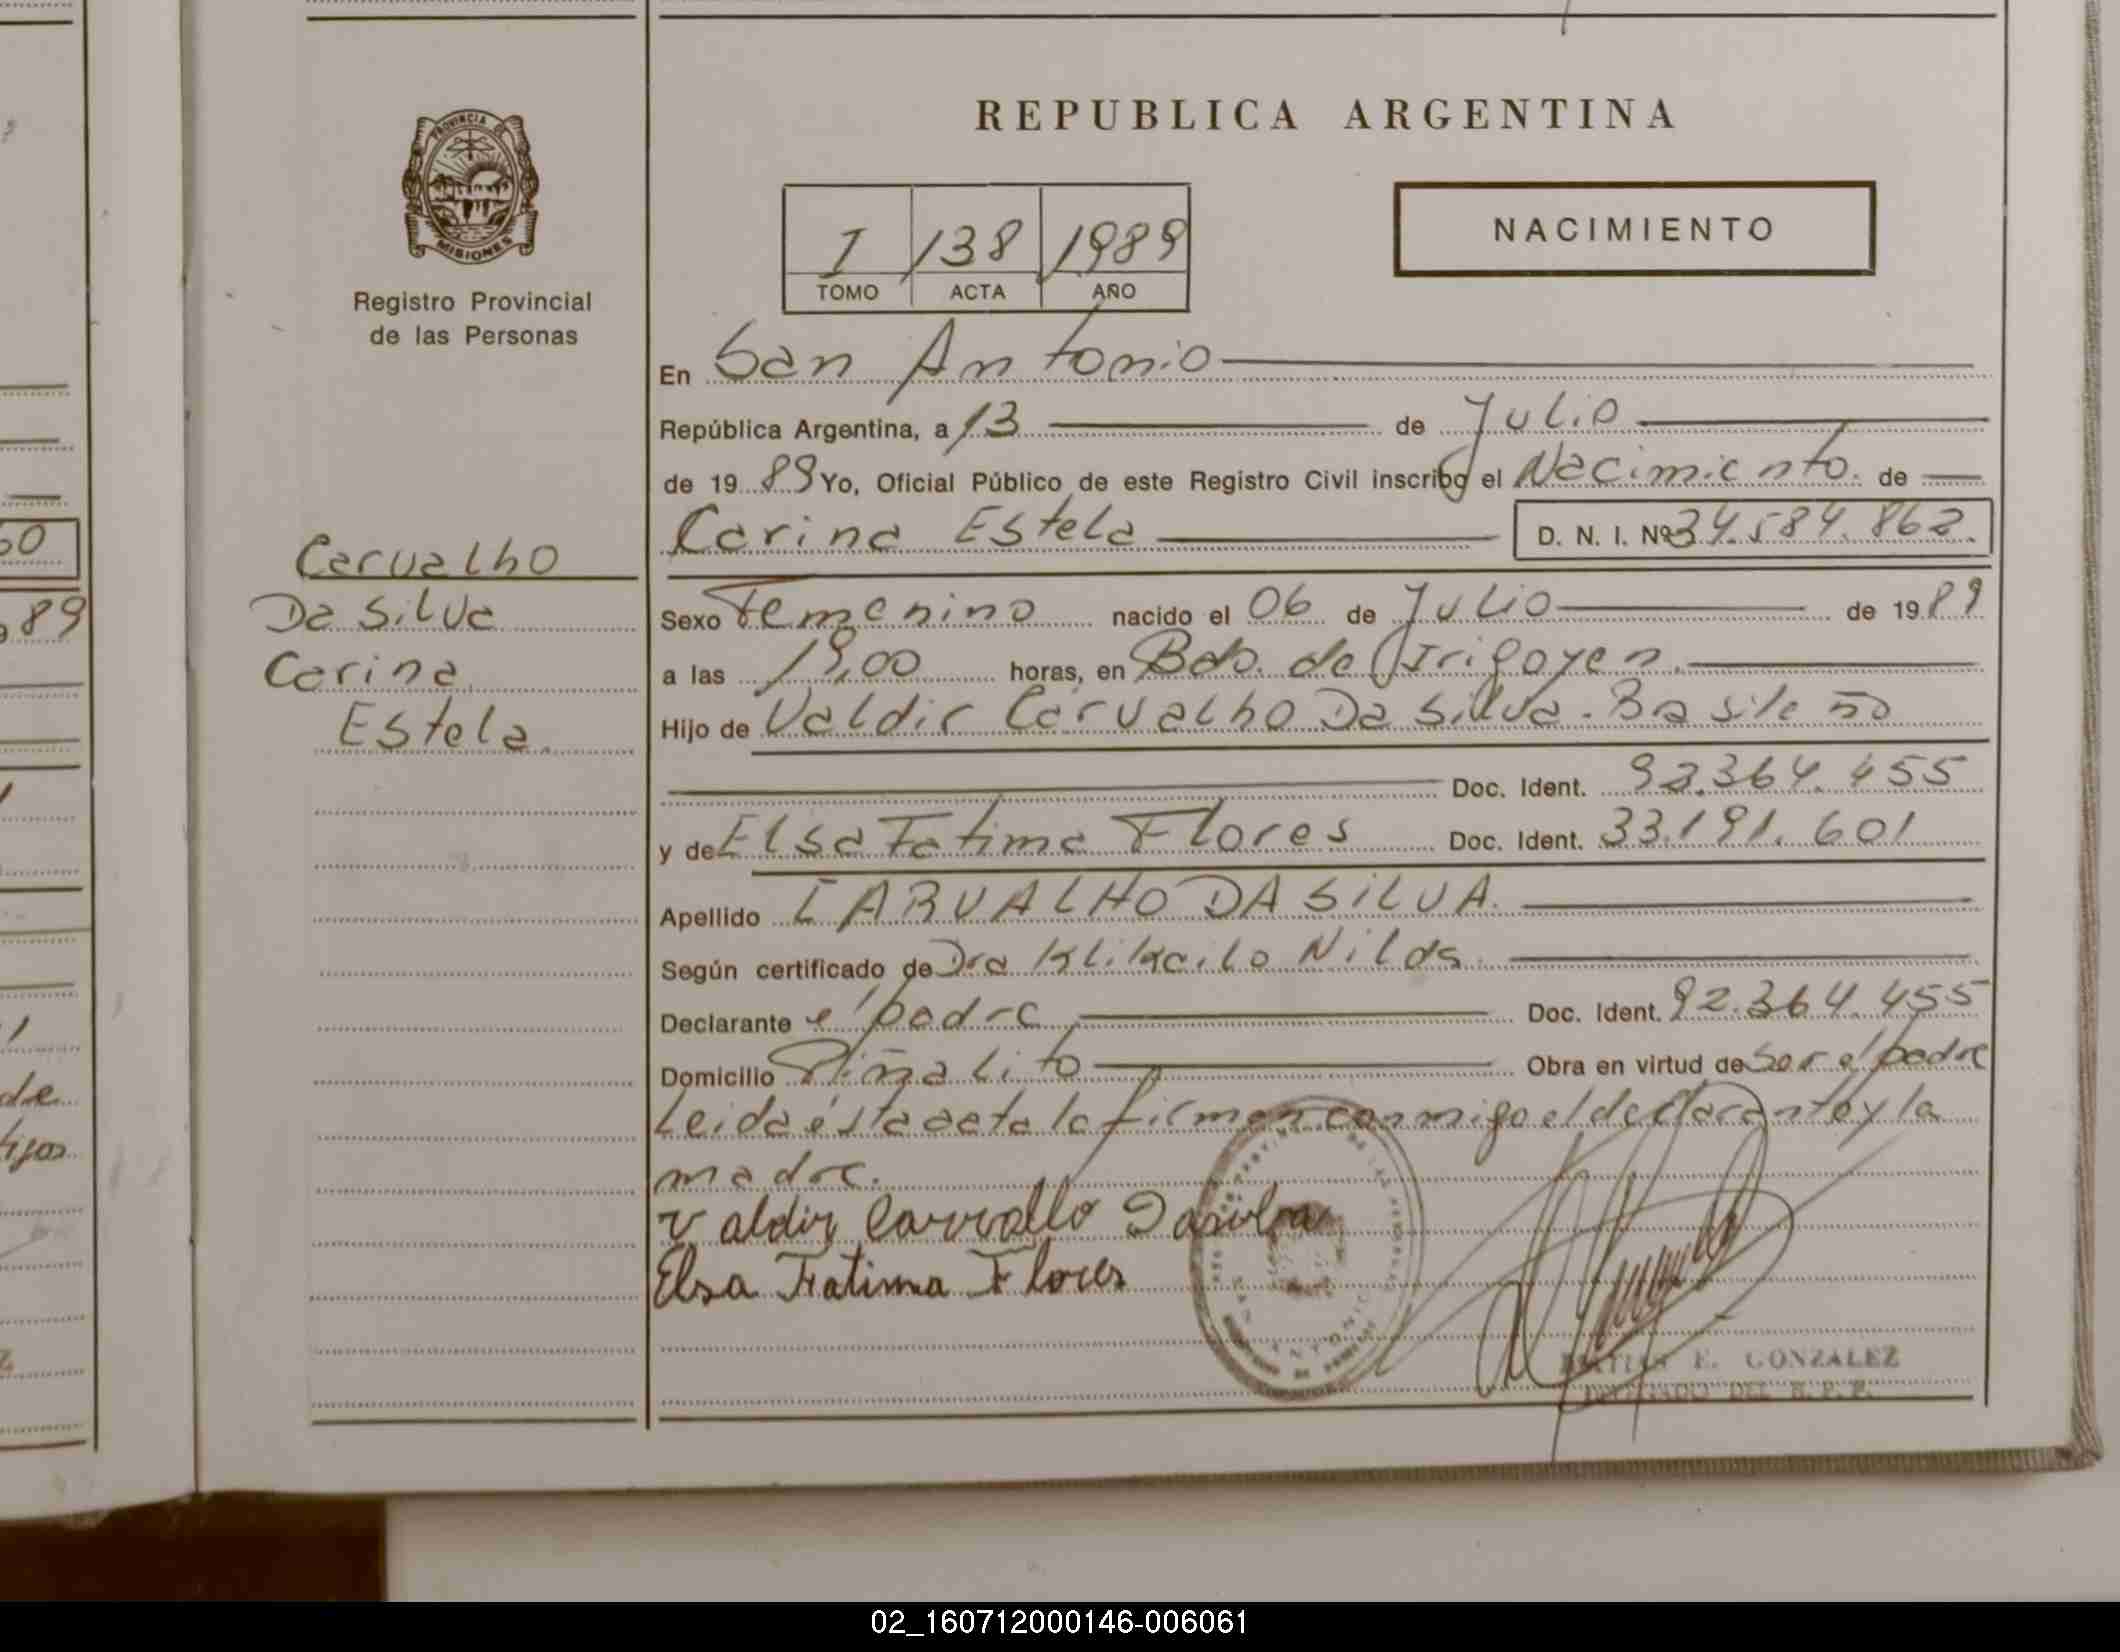 PROVINCIA DE
MISIONES
Registro Provincial
de las Personas
Carvalho
Da Silva
Carina
Estela.
REPUBLICA ARGENTINA
I 138 1989
TOMO ACTA AÑO
NACIMIENTO
En San Antonio
República Argentina, a 13 de Julio
de 19 89 Yo, Oficial Público de este Registro Civil inscribo el Nacimiento. de
Carina Estela D. N. I. Nº 34.584.862.
Sexo Femenino nacido el 06 de Julio de 19 89
a las 19,00 horas, en Bdo. de Irigoyen.
Hijo de Valdir Carvalho Da Silva. Brasileño
Doc. Ident. 92.364.455
y de Elsa Fatima Flores Doc. Ident. 33.191.601
Apellido CARVALHO DA SILVA.
Según certificado de Dra Klikailo Nilda.
Declarante el padre Doc. Ident. 92.364.455
Domicilio Piñalito Obra en virtud de ser el padre
Leida ésta acta la firman conmigo el declarante y la
madre.
Valdir Carvallo Dasilva
Elsa Fatima Flores
E. GONZALEZ
DELEGADO DEL R.P.P.
50
89
de
02_160712000146-006061